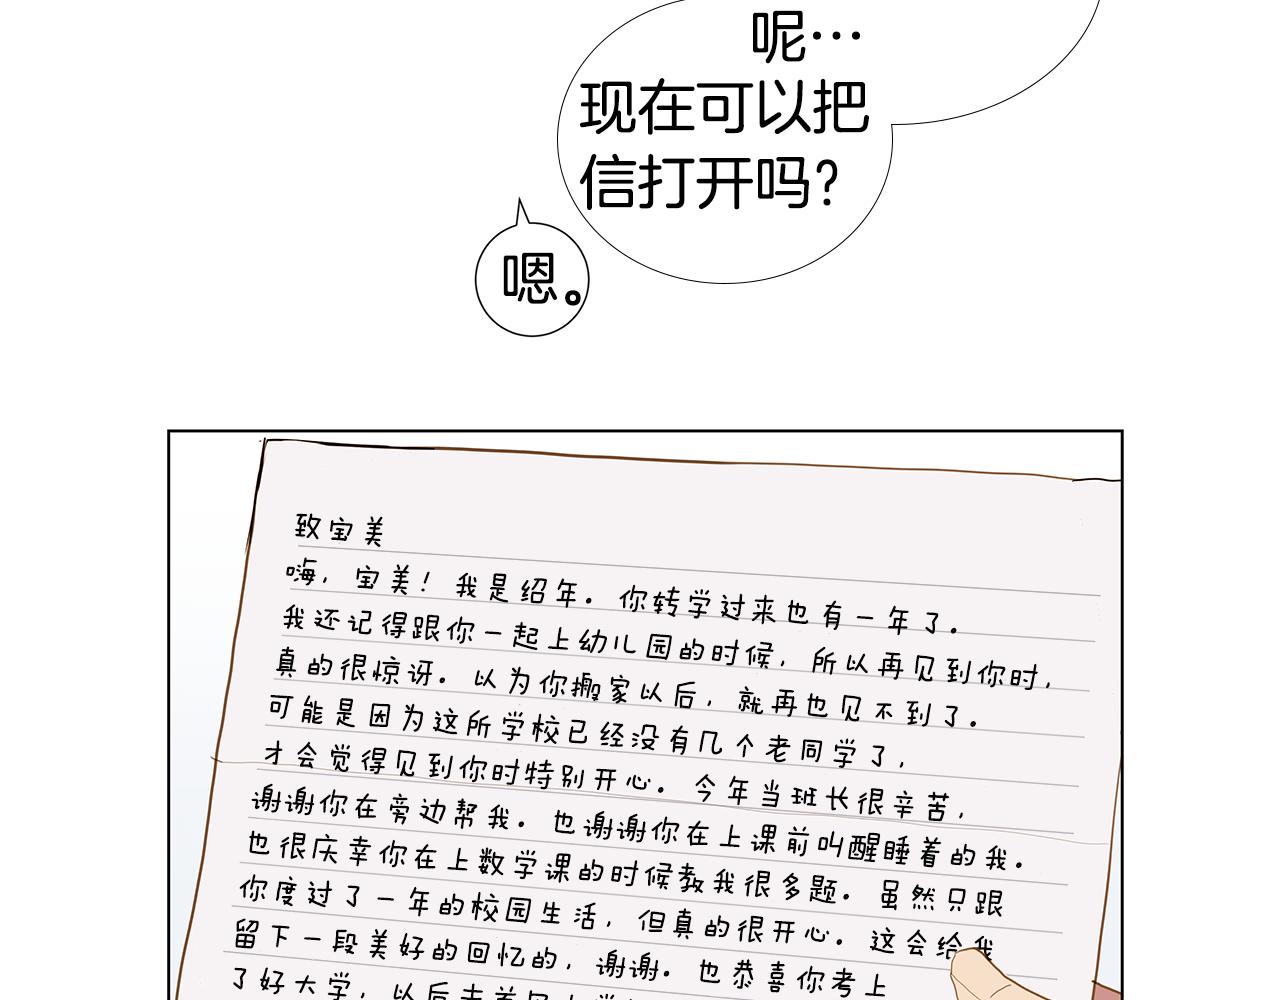 呢…
现在可以把
信打开吗?
嗯。
致宝美
嗨，宝美！我是绍年。你转学过来也有一年了。
我还记得跟你一起上幼儿园的时候，所以再见到你时，
真的很惊讶。以为你搬家以后，就再也见不到了。
可能是因为这所学校已经没有几个老同学了，
才会觉得见到你时特别开心。今年当班长很辛苦，
谢谢你在旁边帮我。也谢谢你在上课前叫醒睡着的我。
也很庆幸你在上数学课的时候教我很多题。虽然只跟
你度过了一年的校园生活，但真的很开心。这会给我
留下一段美好的回忆的，谢谢。也恭喜你考上
了好大学，以后去首